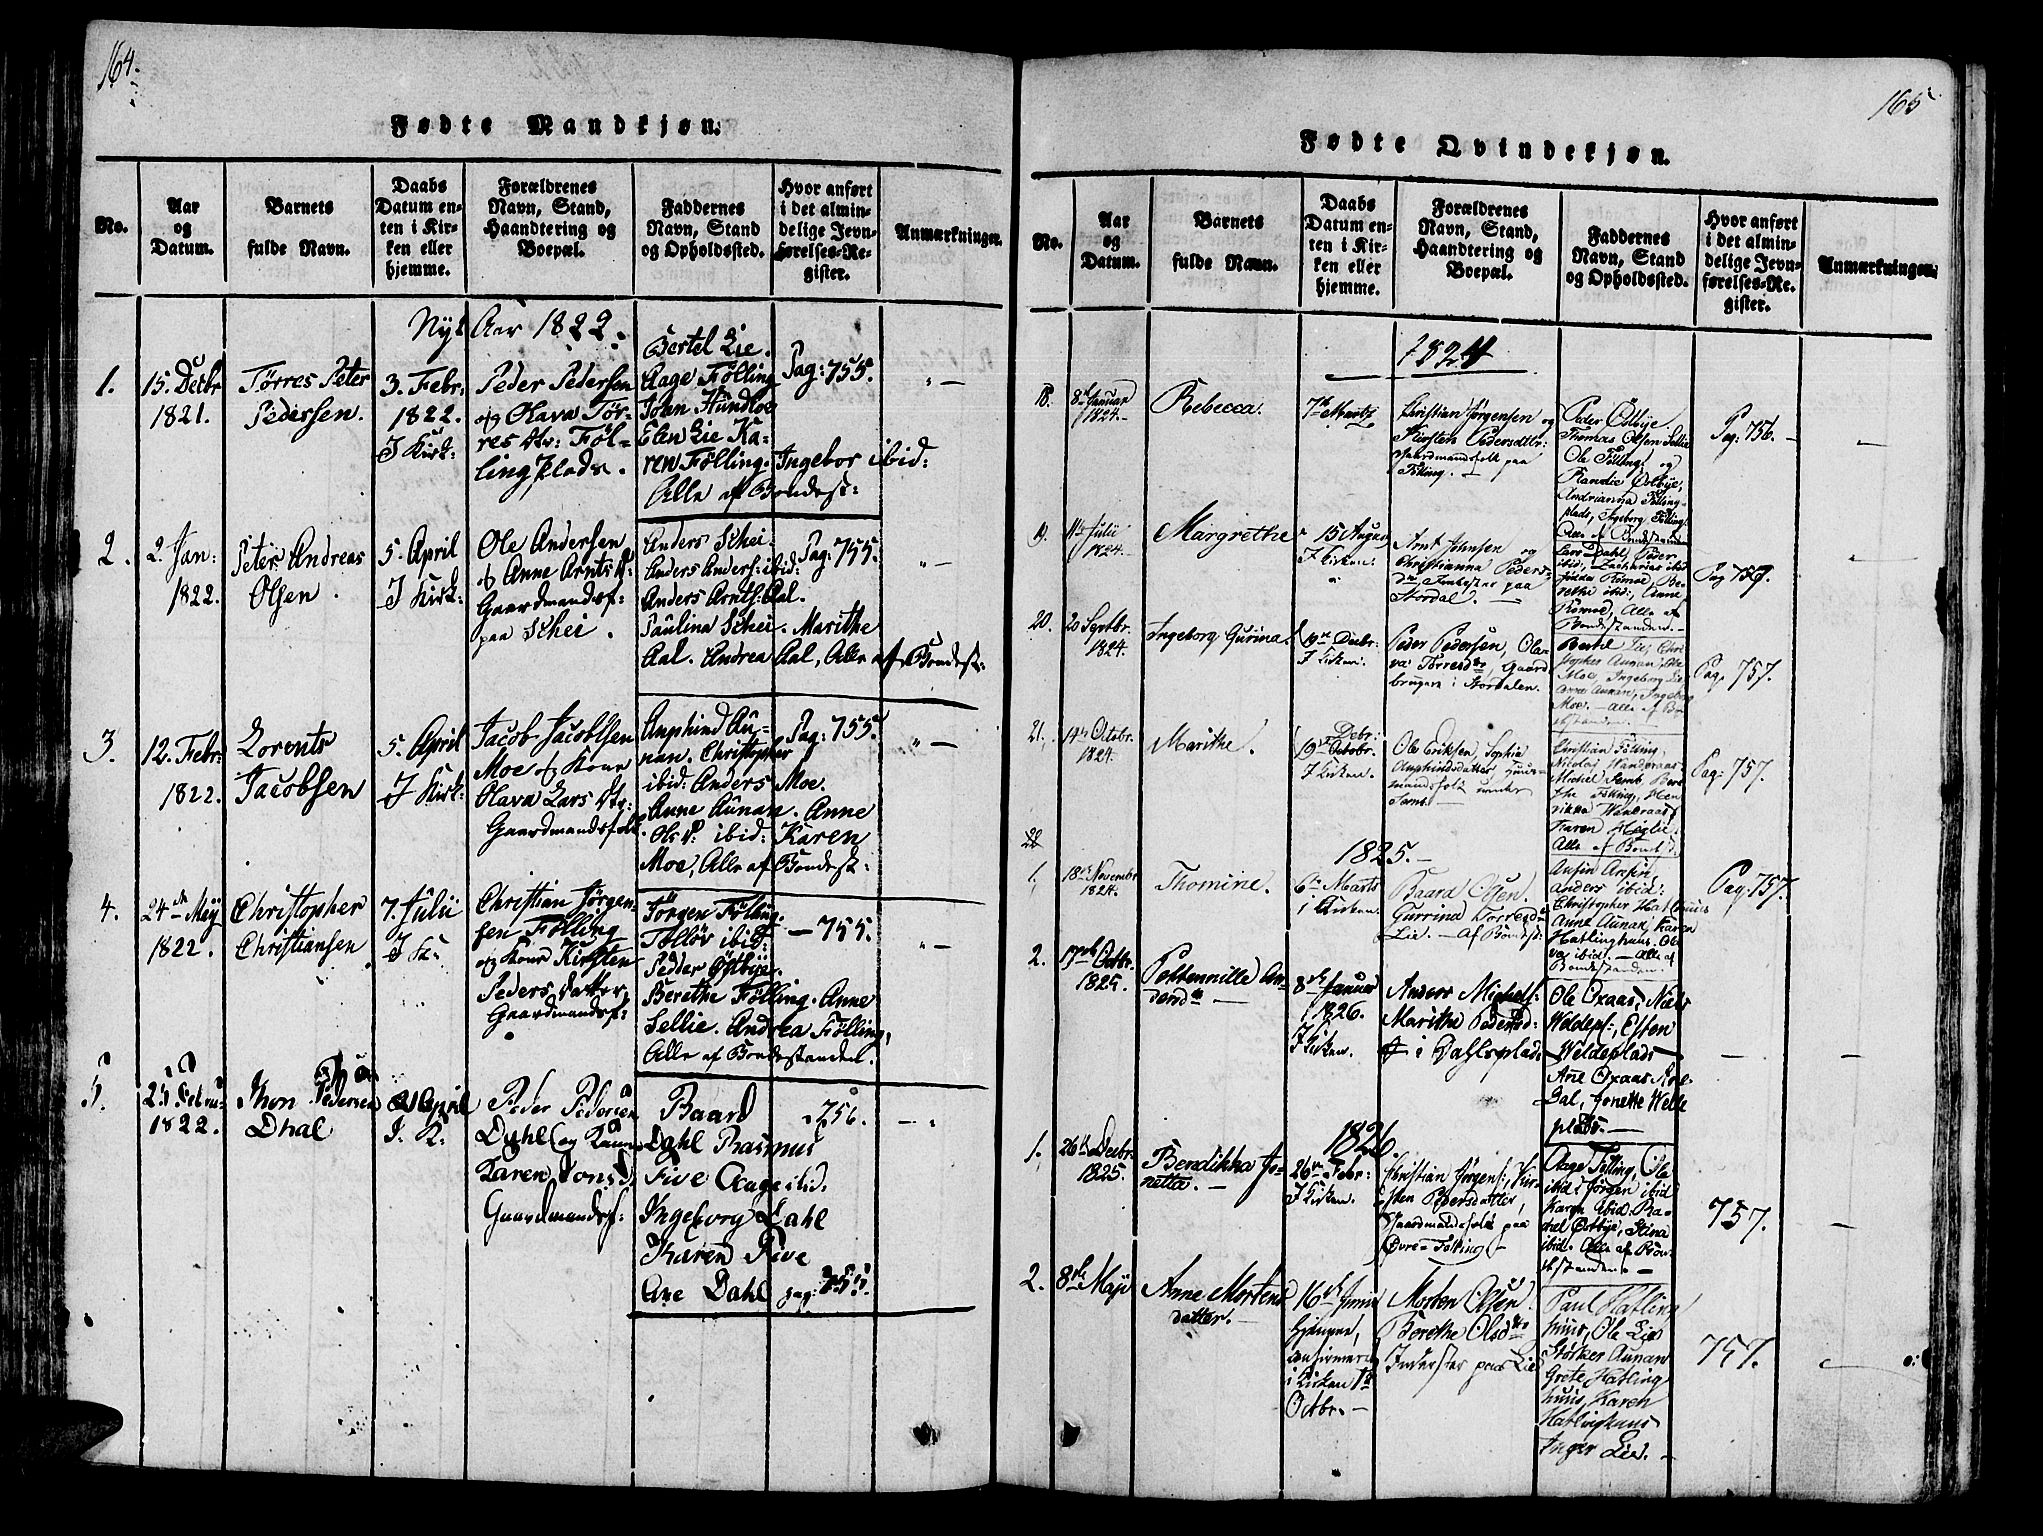 164.
Fødte Mandkjøn.
No.
Aar
og
Datum.
Barnets
fulde Navn.
Daabs
Datum en-
ten i Kir-
ken eller
hjemme.
Forældrenes
Navn, Stand,
Haandtering og
Boepæl.
Faddernes
Navn, Stand
og Opholdssted.
Hvor anført
i det almin-
delige Jevn-
førelses-Re-
gister.
Anmærkninger.
Nyt Aar 1822.
1.
15. Decbr
1821.
Tørres Peter
Pedersen.
3. Febr.
1822.
I Kirk:
Peder Pedersen
og Olava Tør-
res Dtr: Føl-
ling Plads.
Bertel Lie.
Aage Følling
Johan Hundloe
Elen Lie Ka-
ren Følling. Ingebor ibid:
Alle af Bondest:
Pag: 755.
" —
2.
2. Jan:
1822.
Peter Andreas
Olsen.
5. April
I Kirk:
Ole Andersen
og Anne Arnts D
Gaardmandsf:
paa Schei.
Anders Schei.
Anders Anders: ibid:
Anders Arnth: Aal.
Paulina Schei. Marithe
Aal. Andrea Aal, Alle af Bondest:
Pag: 755.
" —
3.
12. Febr:
1822.
Lorents
Jacobsen
5. April
I Kirk:
Jacob Jacobsen
Moe og Kone
Olava Lars Dtr.
Gaardmandsfolk
Amphind Au-
nan. Christopher
ibid: Anders Moe.
Anne Aunan. Anne
Ols D. ibid: Karen
Moe, Alle af Bondest:
Pag: 755.
" —
4.
24de May
1822.
Christopher
Christiansen
7. Julii
I K:
Christian Jørgen-
sen Følling
og Kone Kirsten
Peders Datter,
Gaardmandsf:
Jørgen Følling.
Tolløv ibid:
Peder Østbye.
Berethe Følling. Anne
Sellie. Andrea Følling,
Alle af Bondestanden.
— 755.
" —
5.
1822.
Jhon Pedersen
Dhal
21 April
I. K.
Peder Pedersen
Dahl og Kaane
Karen Jonsd
Gaardmandsf:
Baard
Dahl Rasmus
Five Aage ibid:
Ingeborg Dahl
Karen Five
Ane Dahl pag: 755.
" 756.
— .
165
Fødte Qvindekjøn.
No.
Aar
og
Datum.
Barnets
fulde Navn.
Daabs
Datum en-
ten i Kir-
ken eller
hjemme.
Forældrenes
Navn, Stand,
Haandtering og
Boepæl.
Faddernes
Navn, Stand
og Opholdssted.
Hvor anført
i det almin-
delige Jevn-
førelses-Re-
gister.
Anmærkninger.
1824
18.
8de Januar
1824.
Rebecca.
7de Martz
Christian Jørgensen og
Kirsten Pedersdtr:
Gaardmandsfolk paa
Følling.
Peder Østbye.
Thomas Olsen Sellie
Ole Følling, og
Randie Østbye,
Andrianna Følling-
plads, Ingeborg Følling.
Alle af Bondestand
Pag: 756. —
—
19.
11te Julii
1824.
Margrethe
15 Augus
I Kirken.
Arnt Johnsen og
Christianna Peders-
Dtr, paa
Stordal. —
Lars Dahl, Peder
ibid:, Zacharias ibid
Tømoe, Be-
rethe ibid:, Anne
Tømoe, Alle af
Bondestanden.
Pag 757.
20.
20 Septbr.
1824.
Ingeborg Gurina.
19de Decbr.
I Kirken.
Peder Pedersen, Ola-
va Torresdtr, Gaard-
brugere i Stordalen.
Bertil Lie, Chri-
stopher Aunan, Ole
Moe, Ingeborg Lie
Anne Aunan, Ingeborg
Moe. — Alle af Bon-
destanden. —
Pag: 757.
21.
14de Octobr.
1824.
Marithe.
Debr:
19de Octobr.
I Kirken.
Ole Eriksen, Sophia
Amphindsdatter, Huus-
mandsfolk under
Semb. —
Christian Følling,
Nicolai Wanderaas
Michel Semb, Bere-
the Følling, Hen-
rikka Wanderaas,
Karen Høglie.
Alle af Bondest.
Pag: 757.
22
1825. —
1.
18de Novembr
1824.
Thomine.
6te Marts
i Kirken.
Baard Olsen.
Gurrina Torresdtr
Lie. — af Bondest:
Ansin Ansin,
Anders ibid:
Christopher Hatlinghuus
Anne Aunan, Karen
Hatlinghuus. Ol-
va ibid. — Alle af
Bondestanden.
Pag: 757.
2.
17de Octbr.
1825.
Pettennille An-
dersdtr —
8de Januar
1826.
I Kirken.
Anders Michels:
Marithe Pedersd:
i Dahlsplads
Ole Oxaas, Niels
Weldeps:, Esten
Weldeplads
Ane Oxaas, Roe-
dal, Jonette Welle
plads. —
—
—
1826.
1.
26de Decbr.
1825.
Bendikka Jo-
netta. —
26de Febr:
I Kirken.
Christian Jørgens:, Kir-
sten Pedersdatter,
Gaardmandsfolk paa
Øvre-Følling —
Aage Følling, Ole
ibid: Jørgen ibid
Karen ibid: Ra-
chel Østbye, Stina
ibid. Alle af Bon-
destanden. —
757.
—
2.
8de Maji
Anne Mortens
datter. —
16de Junii
hjemme,
confirmeret
i Kirken 1te
Octbr. —
Morten Olsen.
Berethe Olsdtr
Inderster paa Lie
Paul Hatling
huus, Ole Lie
Størker Aunan
Grete Hatling
huus, Karen
Hatlinghuus
Inger Lie. —
757.